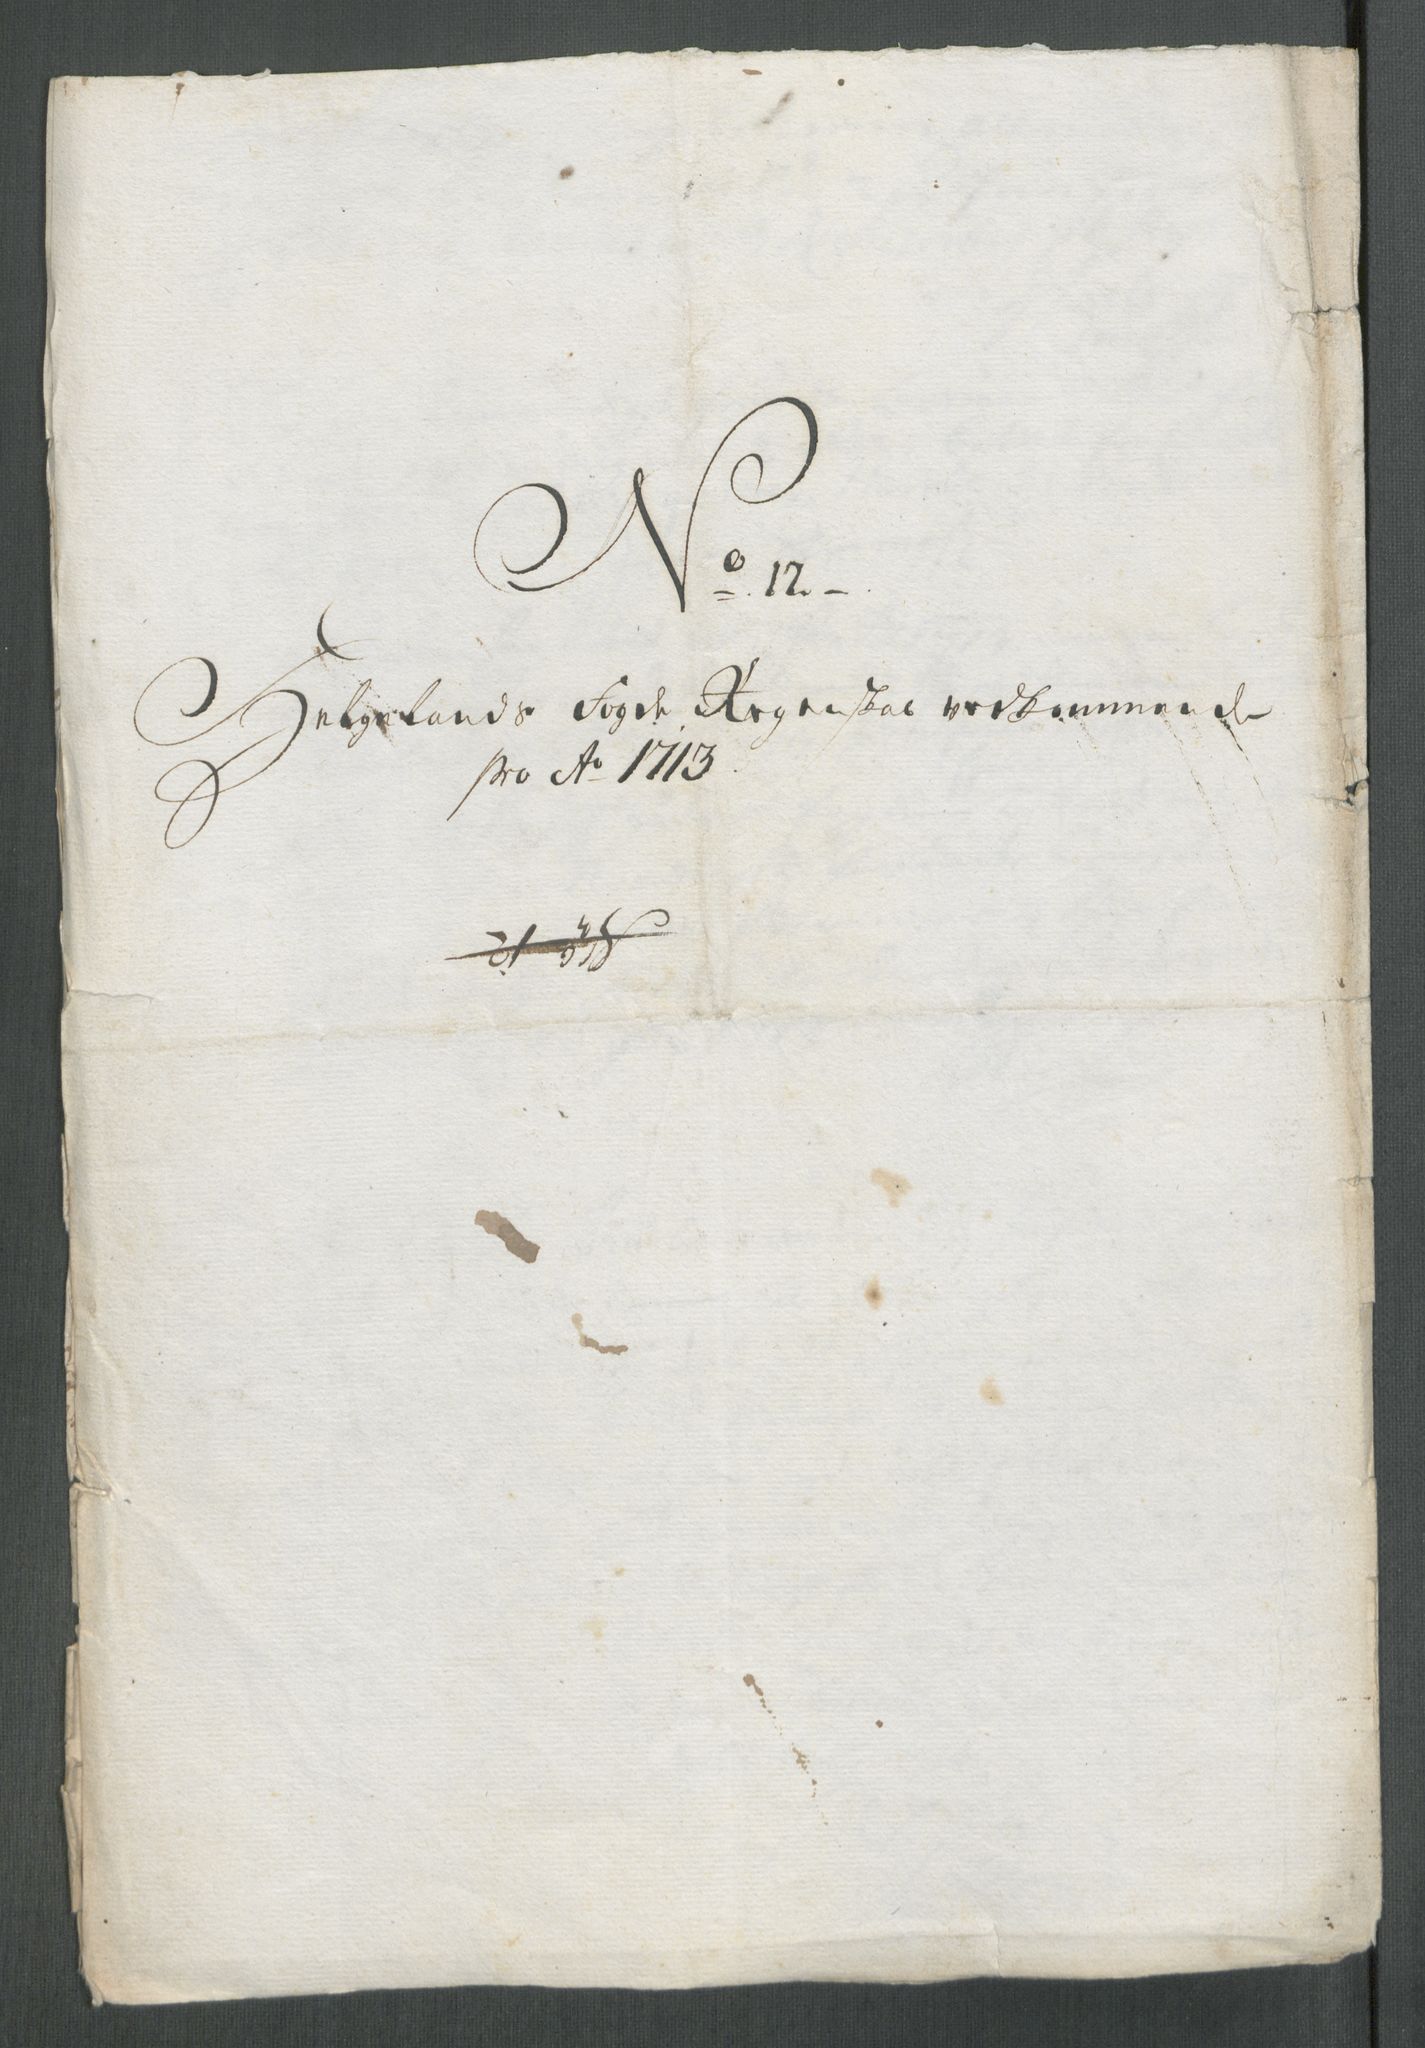 No. 12.
Helgelands Fogde Regenskab vedkommende
pro Ao 1713